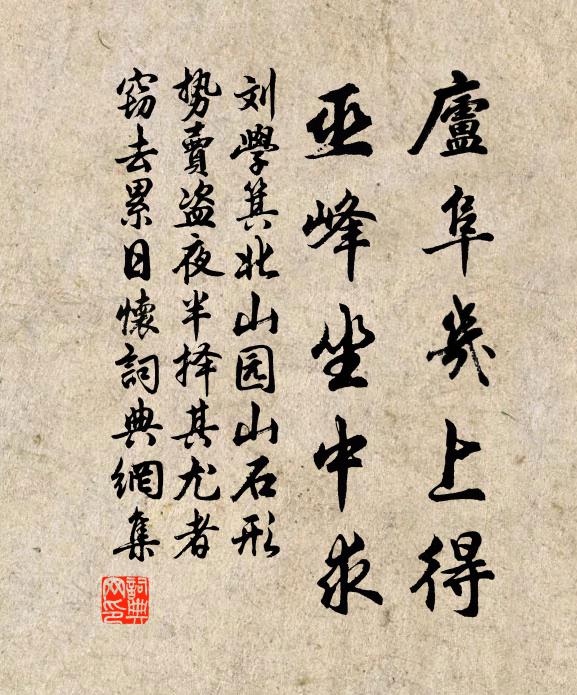 廬阜几上得
巫峰坐中求
刘學箕北山园山石形
势賣盗夜半择其尤者
窃去累日懷詞典網集
詞典
网印